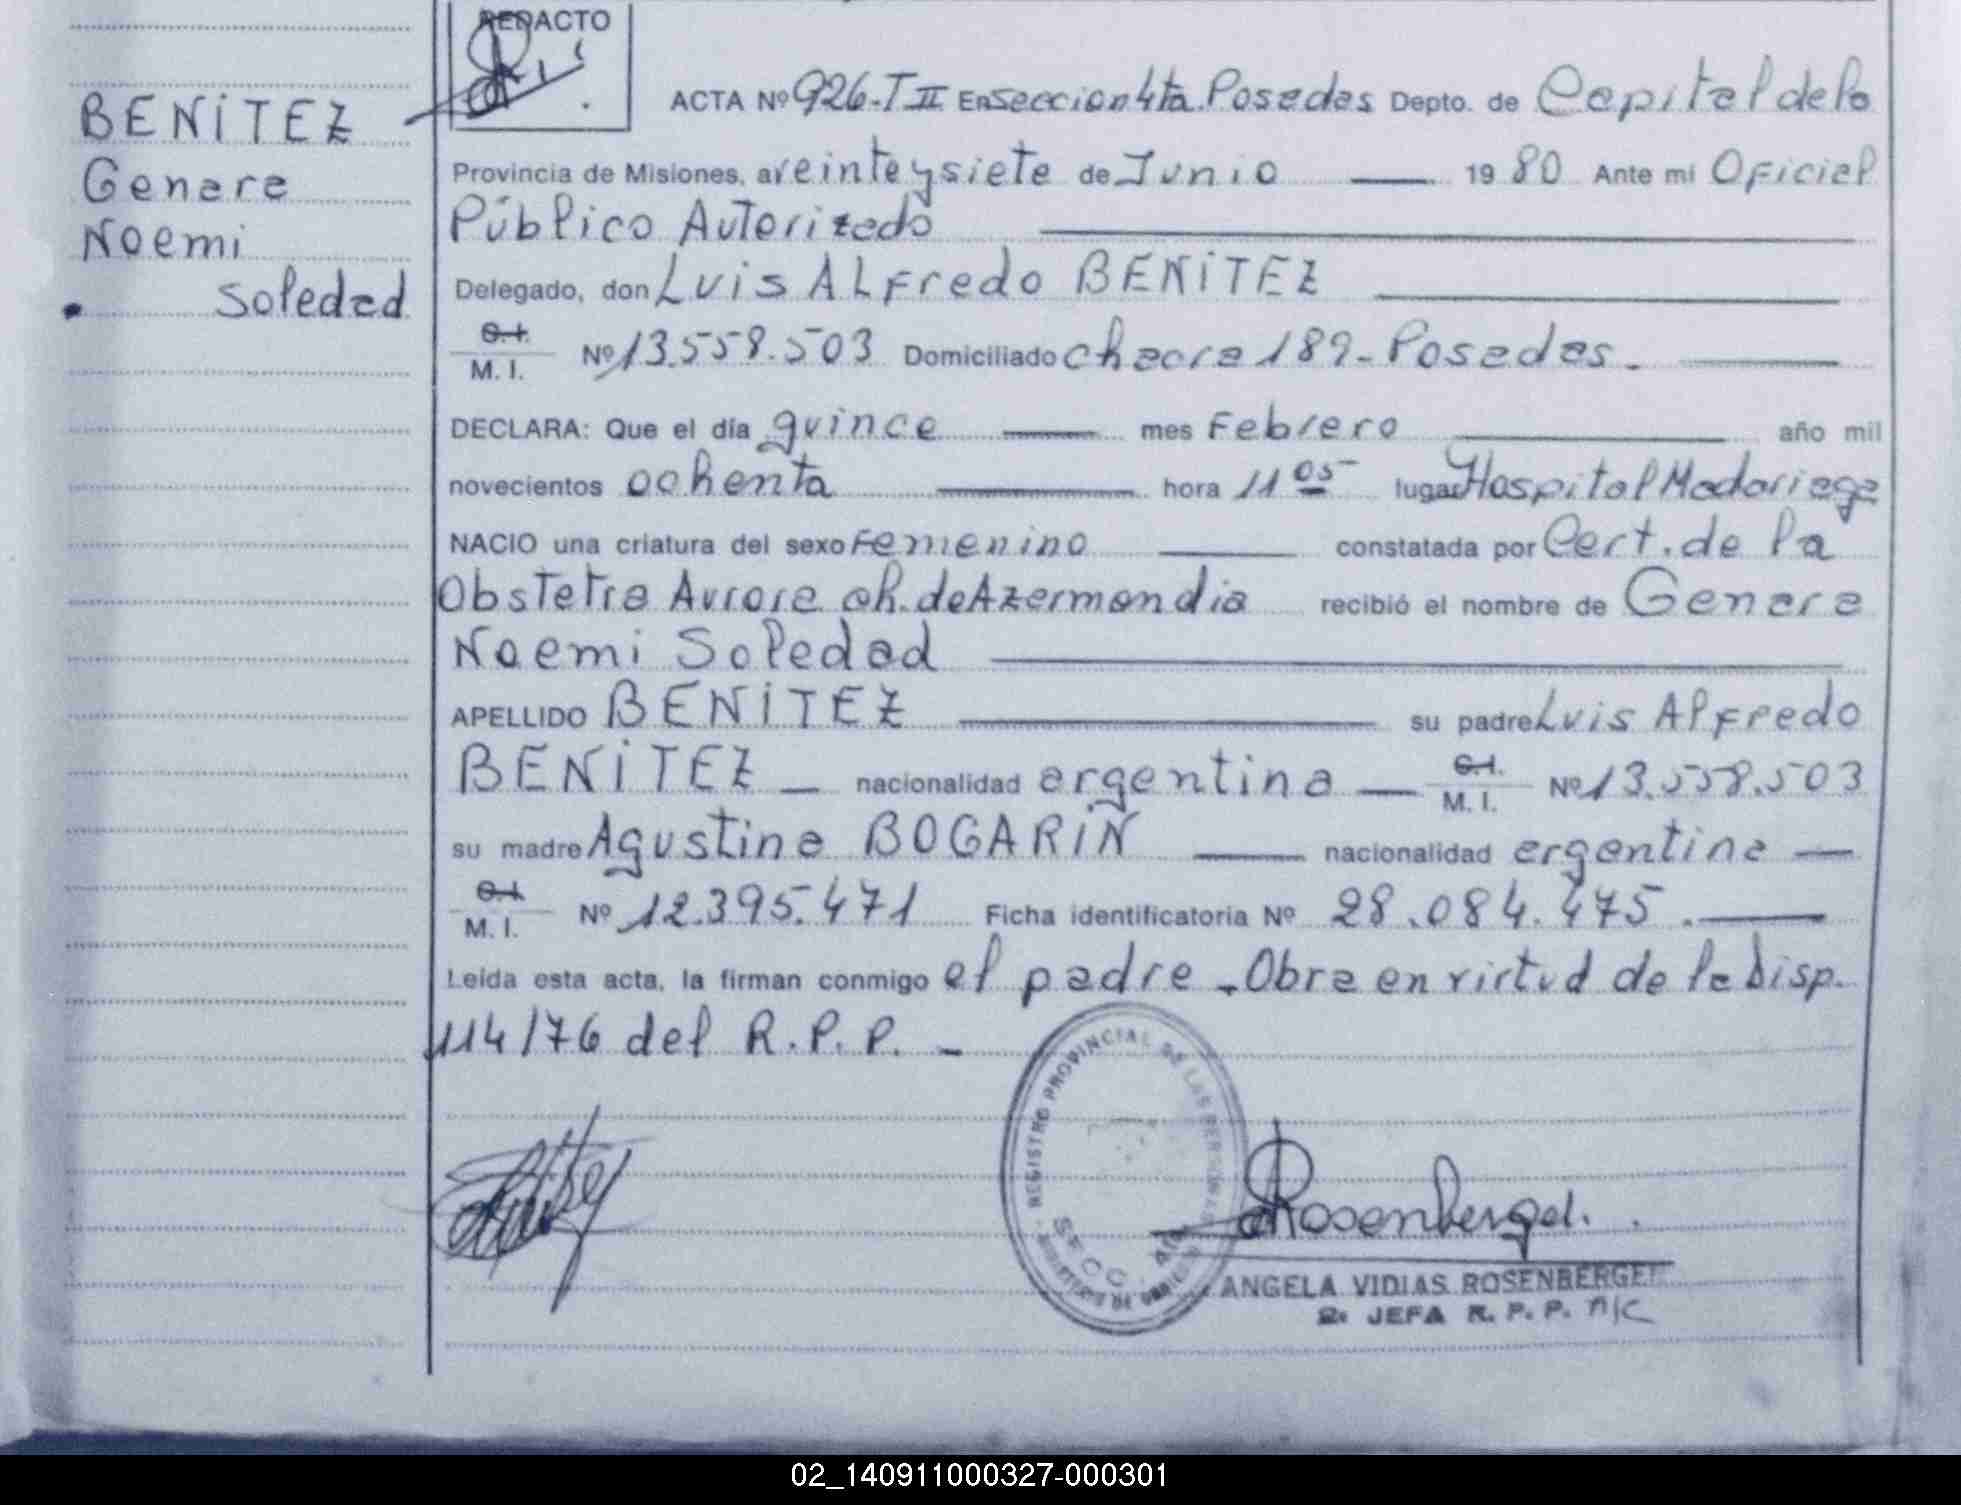 REDACTO
BENITEZ
Genara
Noemi
Soledad
ACTA Nº 926-T II En Seccion 4ta. Posadas Depto. de Capital de la
Provincia de Misiones, a veinte y siete de Junio 19 80 Ante mi Oficial
Público Autorizado
Delegado, don Luis ALFredo BENITEZ
C.I.
M. I. Nº 13.558.503 Domiciliado chacra 189 - Posadas.
DECLARA: Que el día quince mes Febrero año mil
novecientos ochenta hora 11 05 lugar Hospital Madariaga
NACIO una criatura del sexo Femenino constatada por Cert. de la
Obstetra Aurora ch. de Azarmendia recibió el nombre de Genara
Noemi Soledad
APELLIDO BENITEZ su padre Luis Alfredo
BENITEZ nacionalidad argentina C.I. M. I. Nº 13.558.503
su madre Agustina BOGARIN nacionalidad argentina
C.I.
M. I. Nº 12.395.471 Ficha identificatoria Nº 28.084.475.
Leída esta acta, la firman conmigo el padre - Obra en virtud de la Disp.
114/76 del R.P.P. -
REGISTRO PROVINCIAL DE LAS PERSONAS
SECC. 4ta
Rosenberger.
ANGELA VIDIAS ROSENBERGER
2ª JEFA R. P. P. A/C
02_140911000327-000301